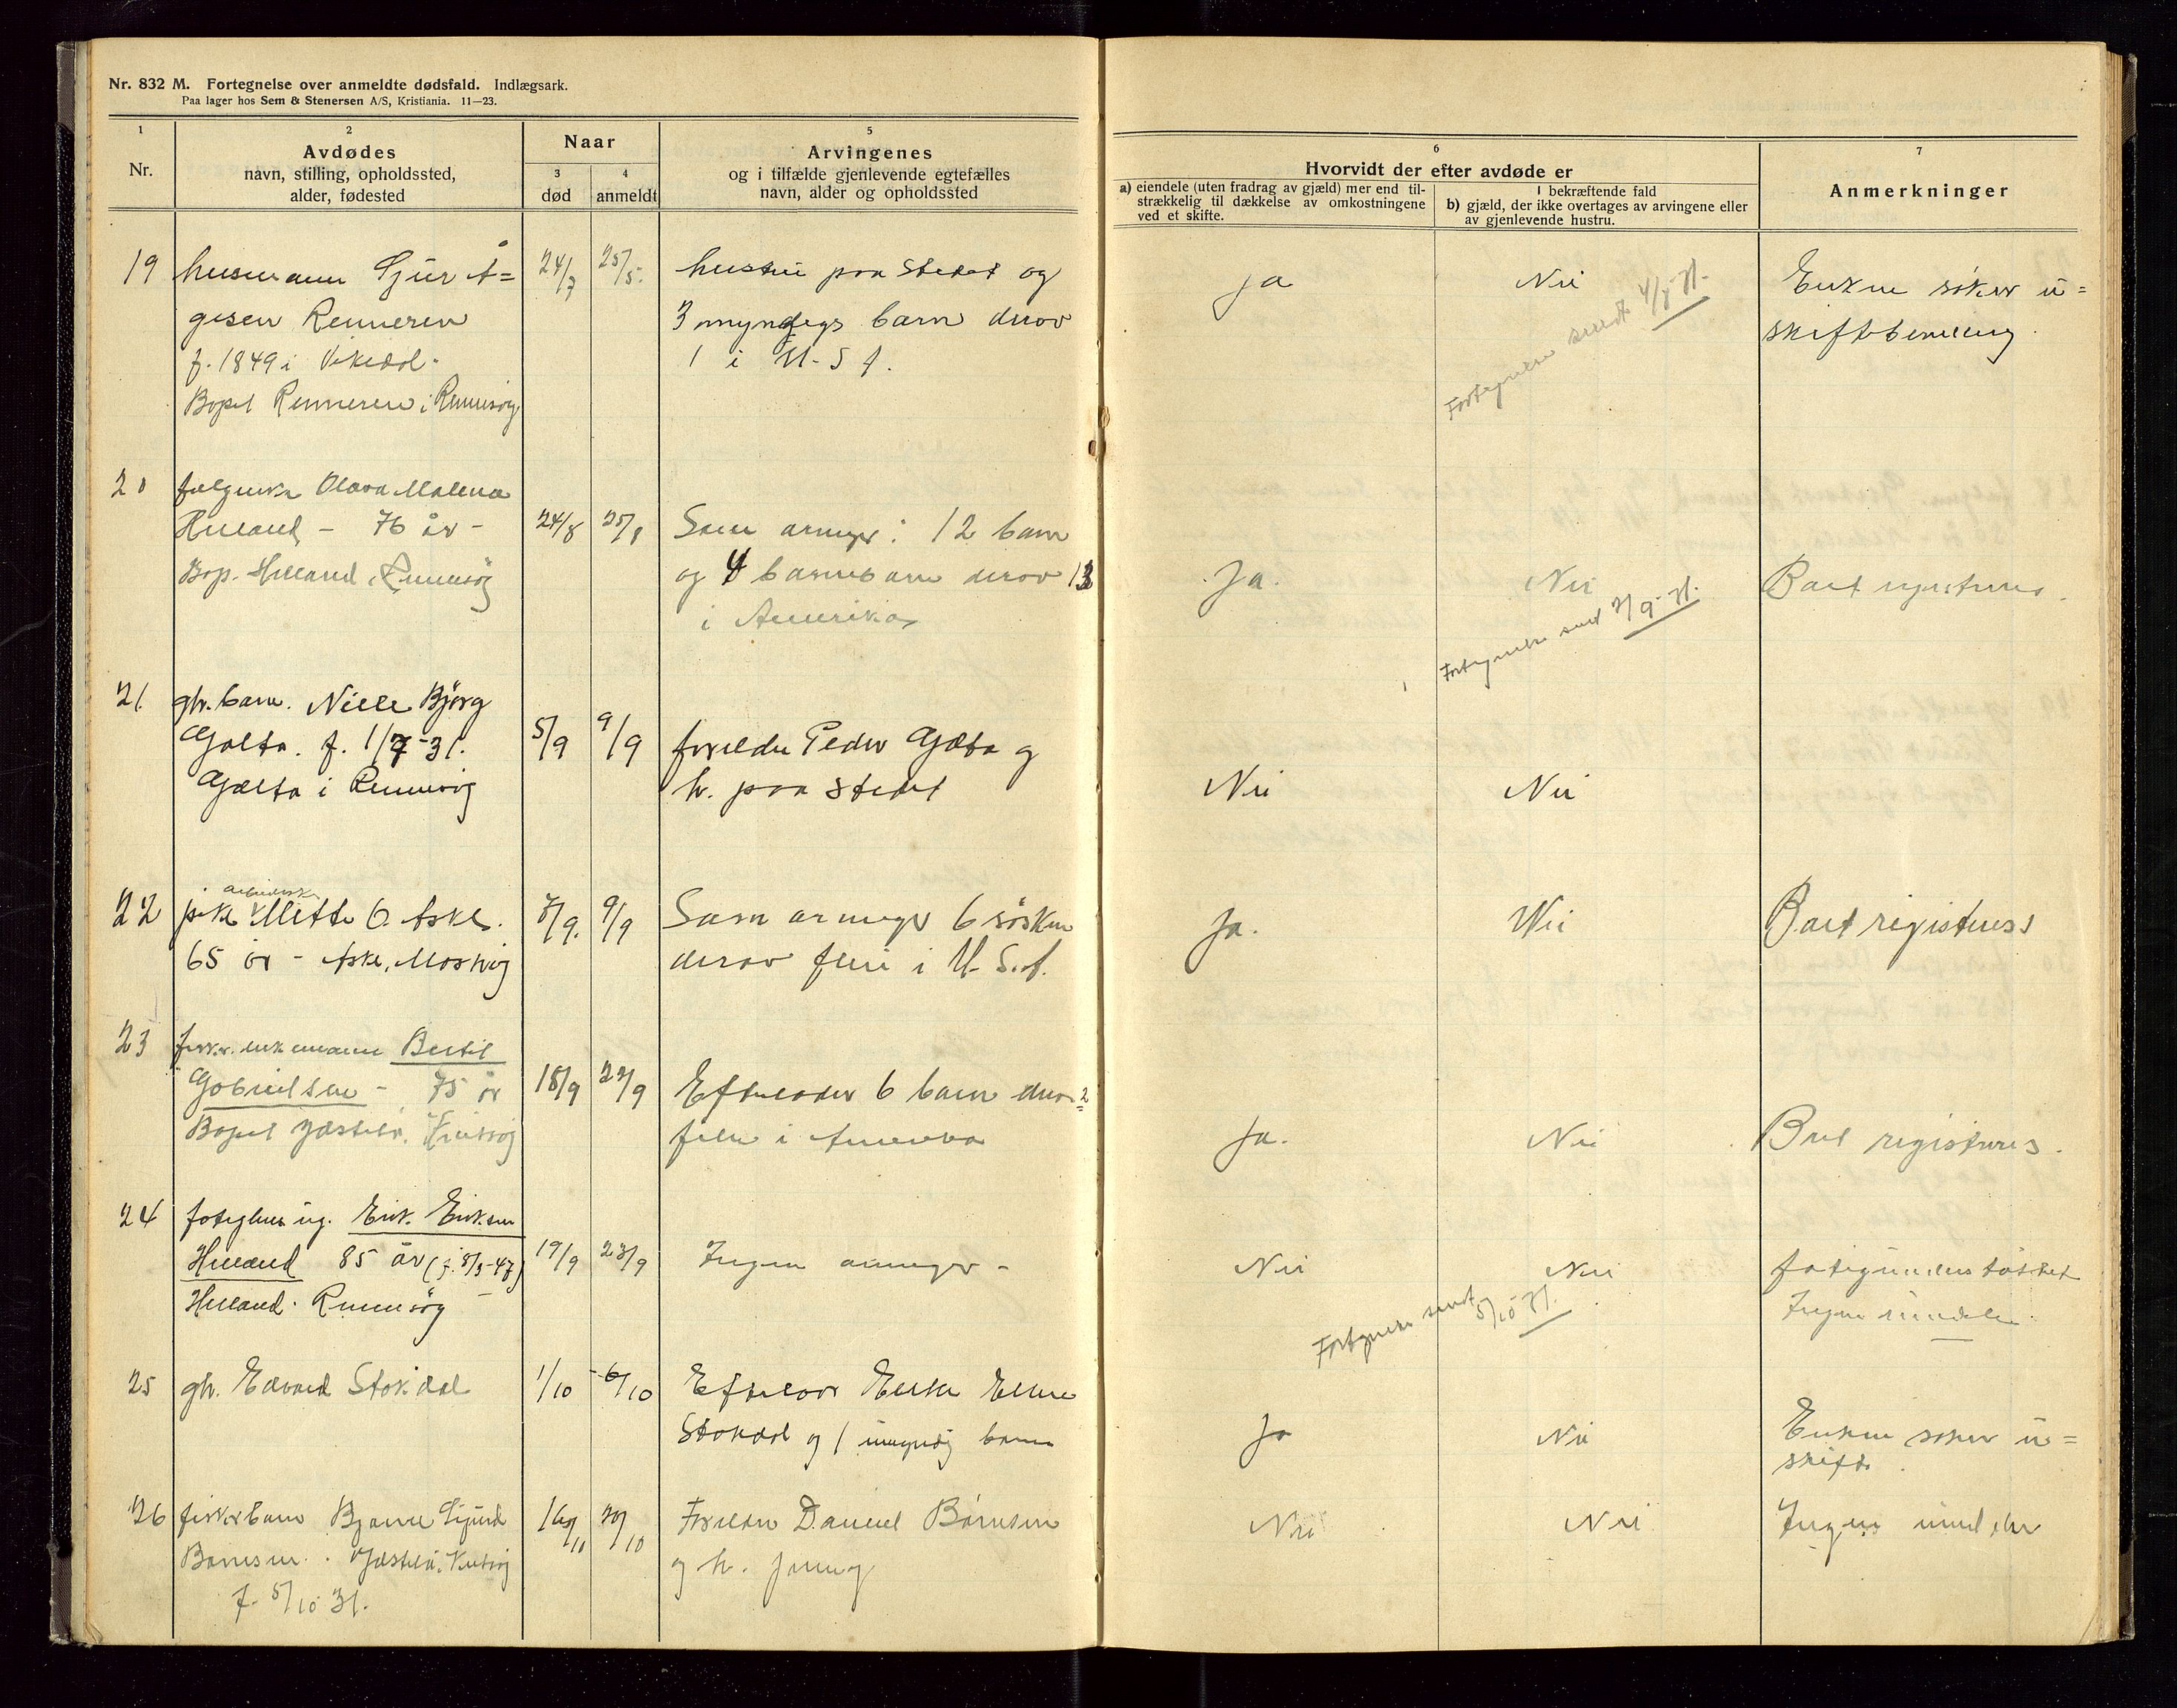 Nr. 832 M. Fortegnelse over anmeldte dødsfald. Indlægsark.
Paa lager hos Sem & Stenersen A/S, Kristiania. 11—23.
1
Nr.
2
Avdødes
navn, stilling, opholdssted,
alder, fødested
Naar
3
død
4
anmeldt
5
Arvingenes
og i tilfælde gjenlevende egtefælles
navn, alder og opholdssted
6
Hvorvidt der efter avdøde er
a) eiendele (uten fradrag av gjæld) mer end til-
strækkelig til dækkelse av omkostningene
ved et skifte.
I bekræftende fald
b) gjæld, der ikke overtages av arvingene eller
av gjenlevende hustru.
7
Anmerkninger
19
husmann Sjur Å=
gesen Renneren
f. 1849 i Vikedal.
Bopel Renneren i Rennesøy
24/7
25/5.
hustru paa stedet og
3 myndige barn derav
1 i U-S A.
Ja
Nei
Fortegnelse sendt 4/8-31.
Enken søker u=
skiftebevilling
20
Olava Malena
Helland - 76 år -
Bop. Helland, Rennesøy
24/8
25/8
Som arvinger: 12 barn
og 4 barnebarn derav 13
i Amerika
Ja.
Nei
Fortegnelse sendt 2/9-31.
Boet registreres.
21.
gbr. barn. Bjørg
Galta. f. 1/7-31.
Galta i Rennesøy
5/9
9/9
forældre Peder Galta og
h. paa stedet
Nei
Nei
22
arbeiderske
pike Mette O. Aske.
65 år - Aske, Mosterøy
7/9.
9/9
Som arvinger 6 søsken
derav flere i U.S.A.
Ja.
Nei
Boet registreres
23
fisker. enkemann Bertil
Gabrielsen - 75 år
Bopel
18/9
22/9
Efterlader 6 barn derav 2
i Amerika
Ja.
Nei
Boet registreres.
24
fatiglem ug. Erik Eriksen
Helland 85 år (f. 8/3-47)
Helland. Rennesøy
19/9
23/9
Ingen arvinger -
Nei
Nei
Fortegnelse sendt 5/10 31.
fatigunderstøttet
Ingen eiendeler.
25
gbr. Edvard Stokdal
1/10
6/10
Efterlader Enke
Stokdal og 1 umyndig barn
Ja
Nei
Enken søker u=
skifte.
26
fisker barn Bjarne Sigurd
f. 5/10 31.
Forældre Daniel
og h.
Nei
Nei
Ingen eiendeler